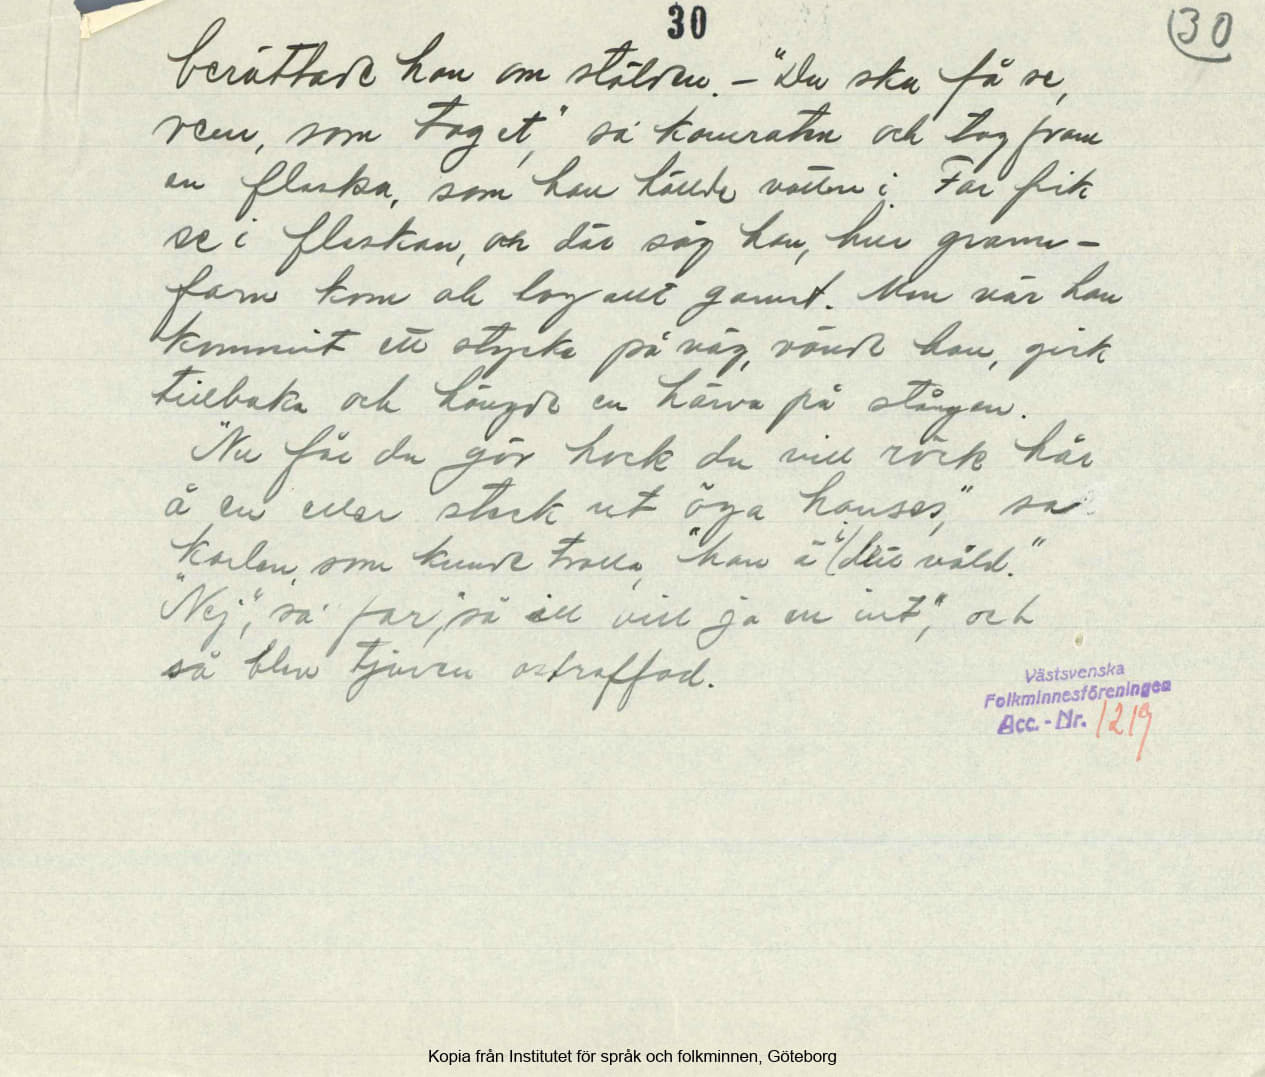 30
30
berättade han om stölden. – "Du ska få se,
vem, som taget," sa' kamraten och tog fram
en flaska, som han hällde vatten i. Far fick
se i flaskan, och där såg han, hur grann-
farn kom och tog allt garnet. Men när han
kommit ett stycke på väg, vände han, gick
tillbaka och hängde en härva på stången.
"Nu får du gör hock du vill
å en eller stack ut öga hanses," sa
karlen, som kunde trolla, "han ä i ditt våld."
"Nej," sa' far, "så ill vill ja en int," och
så blev tjuven ostraffad.
Västsvenska
Folkminnesföreningen
Acc.-Nr. 1219
Kopia från Institutet för språk och folkminnen, Göteborg